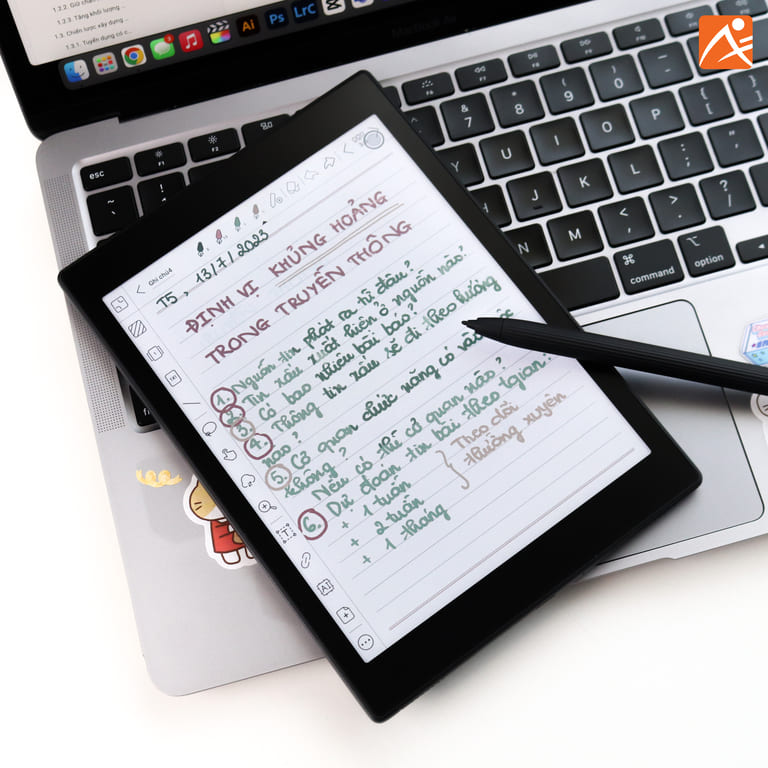 1.2.2. Giữ chân
1.2.3. Tăng khối lượng ...
1.3. Chiến lược xây dựng ...
1.3.1. Tuyển dụng có c...
Ai Ps LrC
MacBook Air
esc F1 F2 F6 F7 F8 F9 F10
~ ` ! 1 & 7 * 8 ( 9 ) 0 _ -
Y U I O P { [ } ]
J K L : ; " '
N M < , > . ? /
⌘ command ⌥ option
Ghi chú4
T5, 13/7/2023
ĐỊNH VỊ KHỦNG HOẢNG
TRONG TRUYỀN THÔNG
1. Nguồn tin phát ra từ đâu?
2. Tin xấu xuất hiện ở nguồn nào?
3. Có bao nhiêu bài báo?
4. Thông tin xấu sẽ đi theo hướng
nào?
5. Cơ quan chức năng có vào
không?
Nếu có thì cơ quan nào?
6. Dự đoán tin bài theo tgian:
+ 1 tuần
+ 2 tuần
+ 1 tháng
} Theo dõi
thường xuyên
AI
T